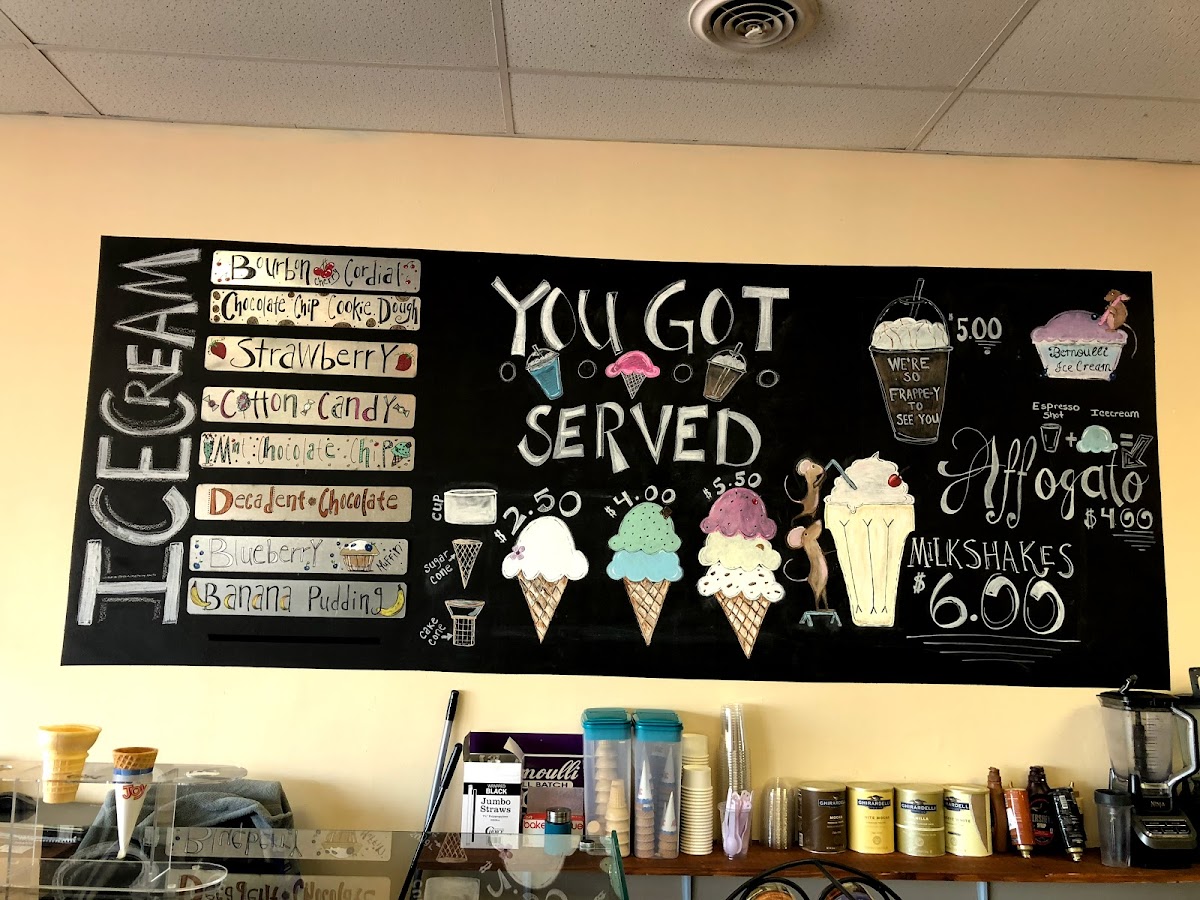 ICE CREAM
Bourbon Cherry Cordial
Chocolate Chip Cookie Dough
Strawberry
Cotton Candy
Mint Chocolate Chip
Decadent Chocolate
Blueberry Muffin
Banana Pudding
YOU GOT
SERVED
CUP
Sugar
cone
cake
cone
$2.50
$4.00
$5.50
$5.00
WE'RE
SO
FRAPPE-Y
TO
SEE YOU
Bernoulli
Ice Cream
Espresso
Shot
+
Icecream
=
Affogato
$4.00
MILKSHAKES
$6.00
JOY
BLACK
Jumbo
Straws
noulli
LL BATCH
GHIRARDELLI
MOCHA
GHIRARDELLI
GHIRARDELLI
NINJA
Blueberry
Chocolate